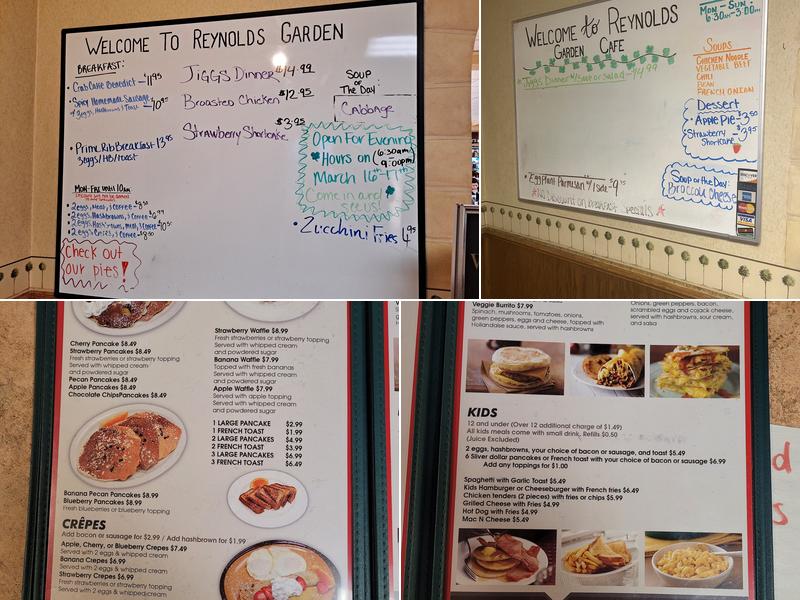 WELCOME TO REYNOLDS GARDEN
BREAKFAST:
• Crab Cake Benedict - $11.95
• Spicy Homemade Sausage - $10.95
2 eggs, Hashbrowns & Toast
• Prime Rib Breakfast 13.95
3 eggs/HB/toast
MON-FRI UNTIL 10am
• 2 eggs, Meat, & Coffee
• 2 eggs, Hashbrowns, & Coffee $6.99
• 2 eggs, Hash browns, Meat, & Coffee
• 2 eggs, Crepes, & Coffee
Check out
our pies!
JIGGS Dinner $14.99
Broasted Chicken $12.95
Strawberry Shortcake $3.95
SOUP
OF
THE DAY:
Cabbage
Open For Evening
Hours on (6:30am-9:00pm)
March 16th-17th
Come in and
see us!
• Zucchini Fries 4.95
WELCOME to REYNOLDS
GARDEN CAFE
MON - SUN:
6:30AM-3:00PM
• Jiggs Dinner w/ Soup or Salad - $14.99
• Egg Plant Parmesan w/ 1 side
No Discount on Breakfast Specials
SOUPS
CHICKEN NOODLE
VEGETABLE BEEF
CHILI
BEAN
FRENCH ONION
Dessert
• Apple Pie - $3.50
• Strawberry Shortcake - $3.95
SOUP OF THE DAY:
Broccoli Cheese
DISCOVER
VISA
Cherry Pancake $8.49
Strawberry Pancakes $8.49
Fresh strawberries or strawberry topping
Served with whipped cream
and powdered sugar
Pecan Pancakes $8.49
Apple Pancakes $8.49
Chocolate ChipsPancakes $8.49
Banana Pecan Pancakes $8.99
Blueberry Pancakes $8.99
Fresh blueberries or blueberry topping
CRÊPES
Add bacon or sausage for $2.99 / Add hashbrown for $1.99
Apple, Cherry, or Blueberry Crepes $7.49
Served with 2 eggs & whipped cream
Banana Crepes $6.99
Served with 2 eggs & whipped cream
Strawberry Crepes $6.99
Fresh strawberries or strawberry topping
Served with 2 eggs & whipped cream
Strawberry Waffle $8.99
Fresh strawberries or strawberry topping
Served with whipped cream
and powdered sugar
Banana Waffle $7.99
Topped with fresh bananas
Served with whipped cream
and powdered sugar
Apple Waffle $7.99
Served with apple topping
Served with whipped cream
and powdered sugar
1 LARGE PANCAKE $2.99
1 FRENCH TOAST $1.99
2 LARGE PANCAKES $4.99
2 FRENCH TOAST $3.99
3 LARGE PANCAKES $6.99
3 FRENCH TOAST $6.49
Veggie Burrito $7.99
Spinach, mushrooms, tomatoes, onions,
green peppers, eggs and cheese, topped with
Hollandaise sauce, served with hashbrowns
Onions, green peppers, bacon,
scrambled eggs and cojack cheese,
served with hashbrowns, sour cream,
and salsa
KIDS
12 and under (Over 12 additional charge of $1.49)
All kids meals come with small drink, Refills $0.50
(Juice Excluded)
2 eggs, hashbrowns, your choice of bacon or sausage, and toast $5.49
6 Sliver dollar pancakes or French toast with your choice of bacon or sausage $6.99
Add any toppings for $1.00
Spaghetti with Garlic Toast $5.49
Kids Hamburger or Cheeseburger with French fries $6.49
Chicken tenders (2 pieces) with fries or chips $5.99
Grilled Cheese with Fries $4.99
Hot Dog with Fries $4.99
Mac N Cheese $5.49
d
s